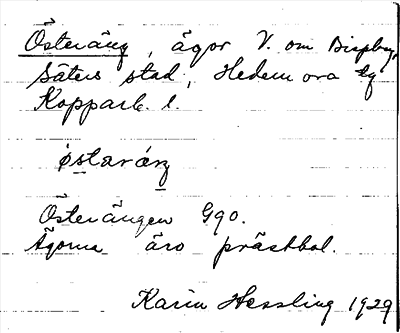 Österäng, ägor V. om Bispbg,
Säters stad, Hedemora tg
Kopparb. l.
östaráŋ
Österängen G90.
Ägorna äro prästbol.
Karin Hessling 1929